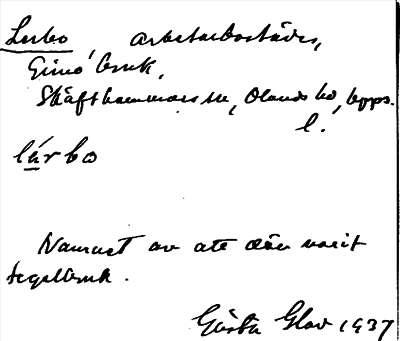 Lerbo, arbetarbostäder,
Gimo bruk,
Skäfthammars sn, Olands hd, Upps.
l.
lérbo
Namnet av att där varit
tegelbruk.
Gösta Glav 1937